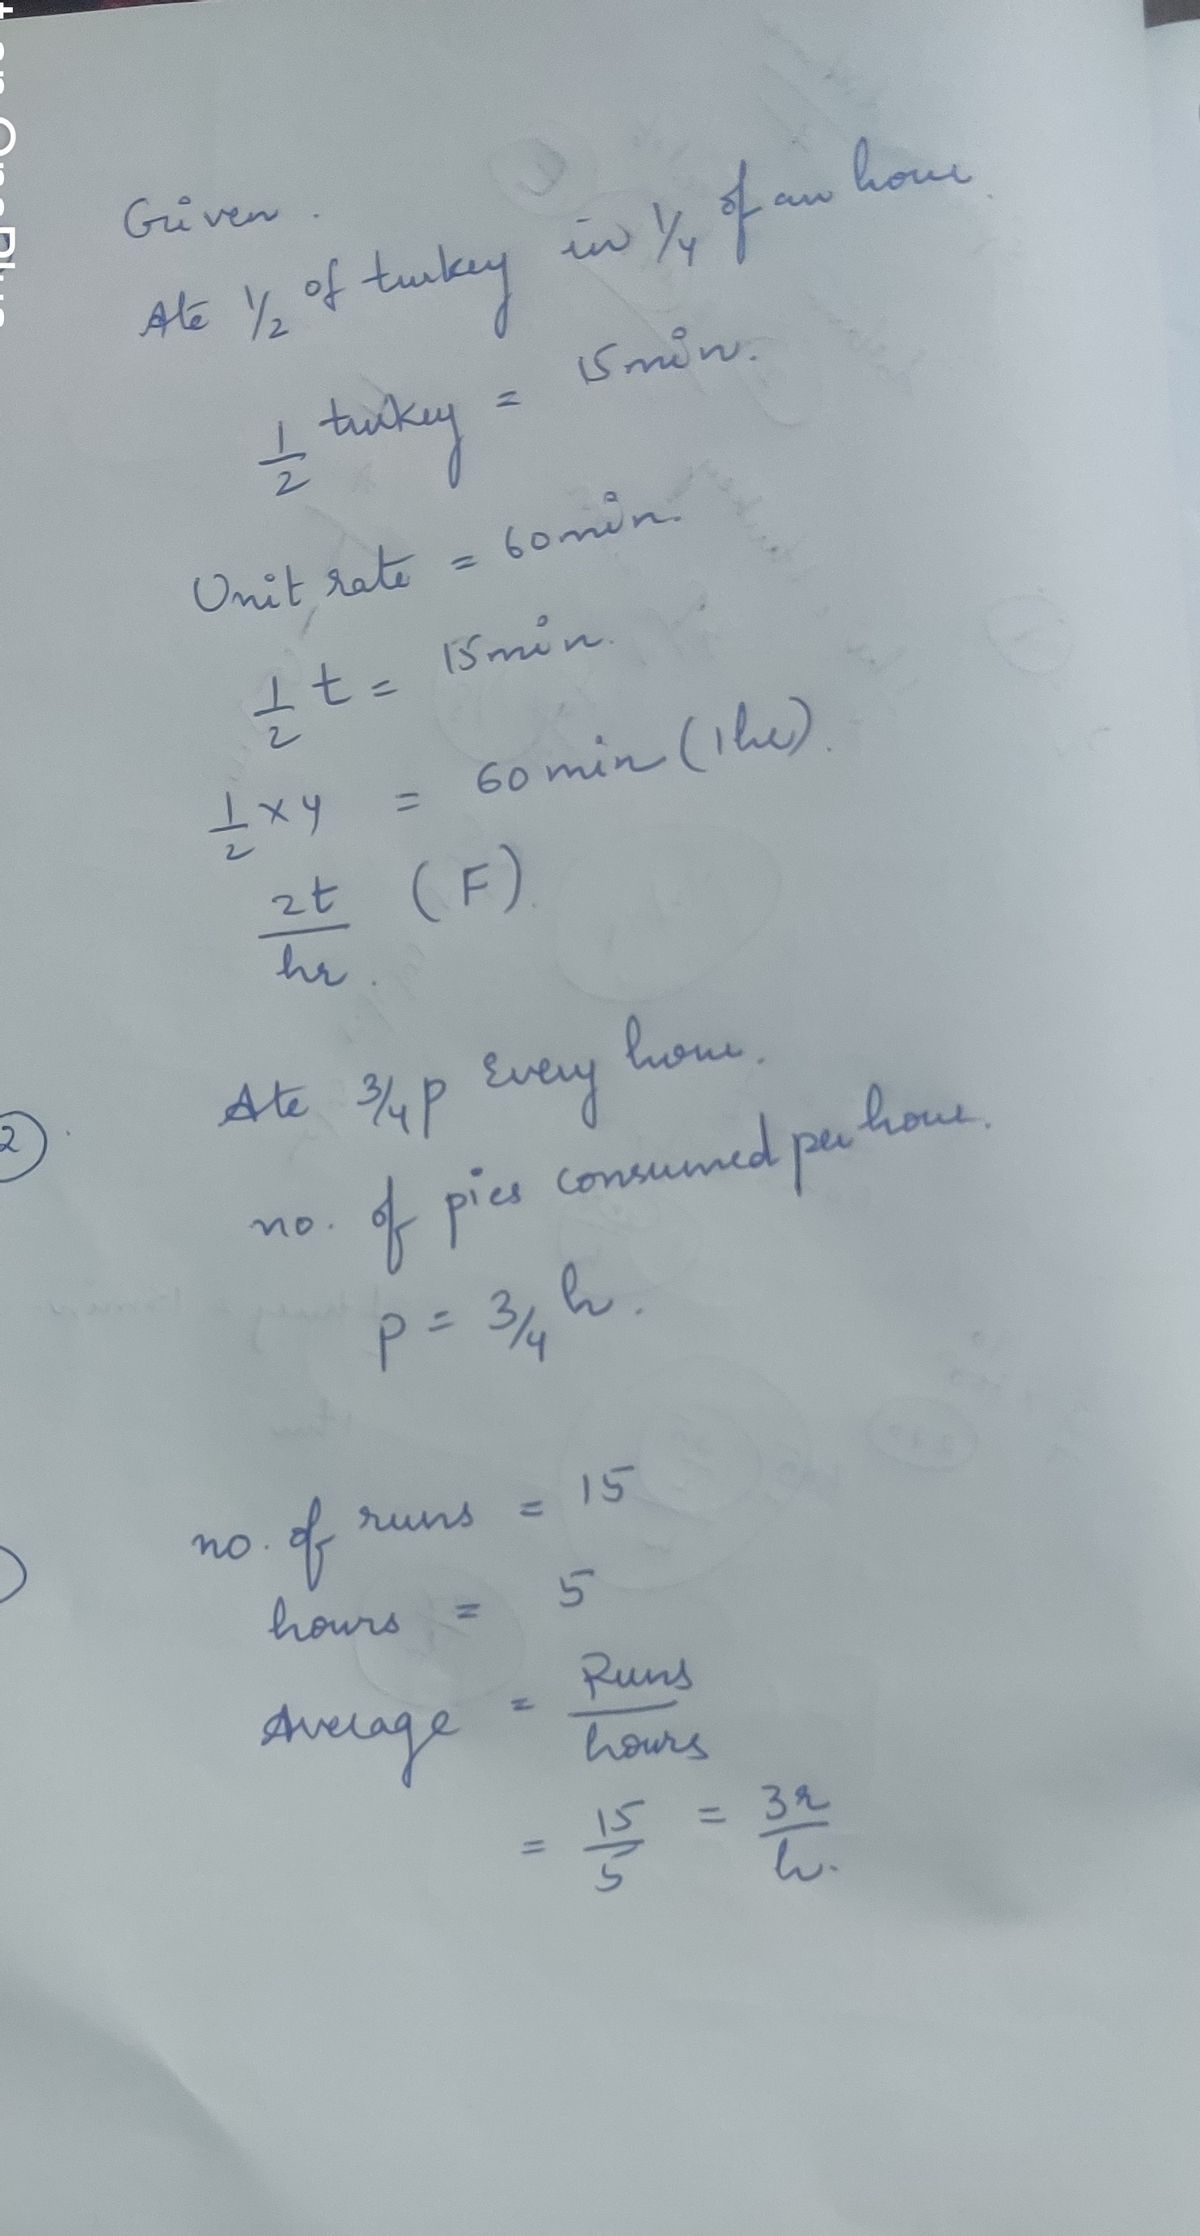 Given.
Ate 1/2 of turkey in 1/4 of an hour.
1/2 turkey = 15 min.
Unit rate = 60 min.
1/2 t = 15 min.
1/2 x 4 = 60 min (1 hr).
2t/hr. (F)
2
Ate 3/4 p Every hour.
no. of pies consumed per hour.
p = 3/4 h.
no. of runs = 15
hours = 5
Average = Runs/hours
= 15/5 = 3r/h.